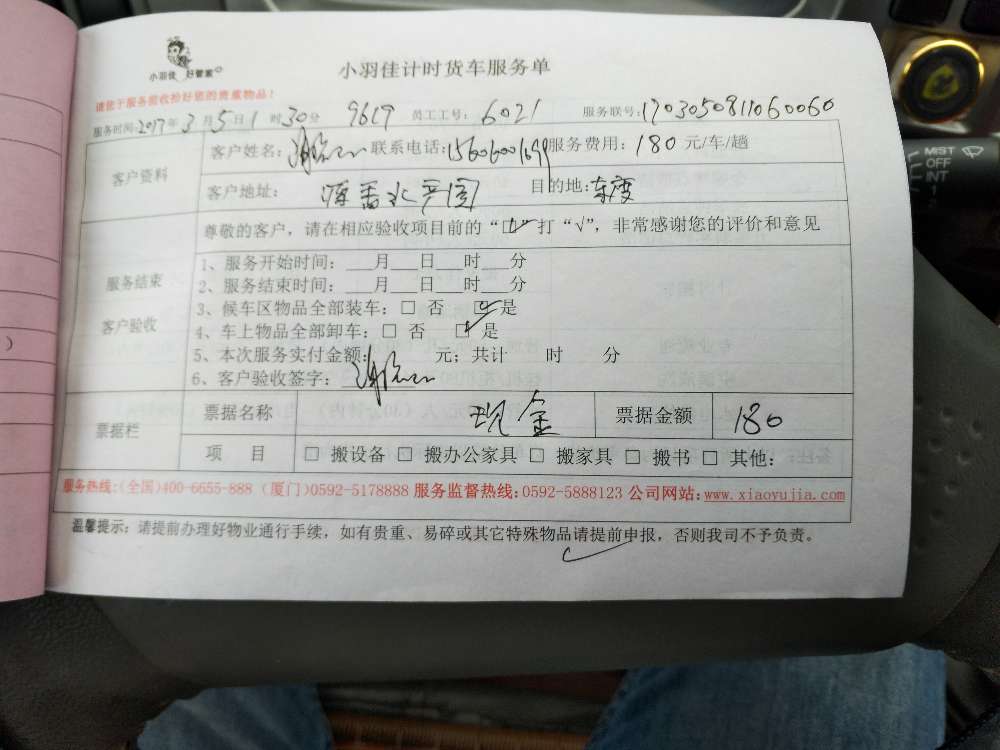 小羽佳 好管家
小羽佳计时货车服务单
请您于服务前收拾好您的贵重物品!
服务时间:2017年3月5日1时30分 9617 员工工号:6021 服务联号:1703050811060060
客户资料
客户姓名: 联系电话:15606001699 服务费用:180元/车/趟
客户地址: 水产园 目的地:东渡
尊敬的客户,请在相应验收项目前的“□”打“√”,非常感谢您的评价和意见
服务结束
客户验收
1、服务开始时间:___月___日___时___分
2、服务结束时间:___月___日___时___分
3、候车区物品全部装车:□ 否 ☑是
4、车上物品全部卸车:□ 否 ☑是
5、本次服务实付金额: 元;共计 时 分
6、客户验收签字:
票据栏
票据名称 现金 票据金额 180
项 目 □ 搬设备 □ 搬办公家具 □ 搬家具 □ 搬书 □ 其他:
服务热线:(全国)400-6655-888 (厦门)0592-5178888 服务监督热线:0592-5888123 公司网站:www.xiaoyujia.com
温馨提示:请提前办理好物业通行手续,如有贵重、易碎或其它特殊物品请提前申报,否则我司不予负责。
MIST
OFF
INT
1
2